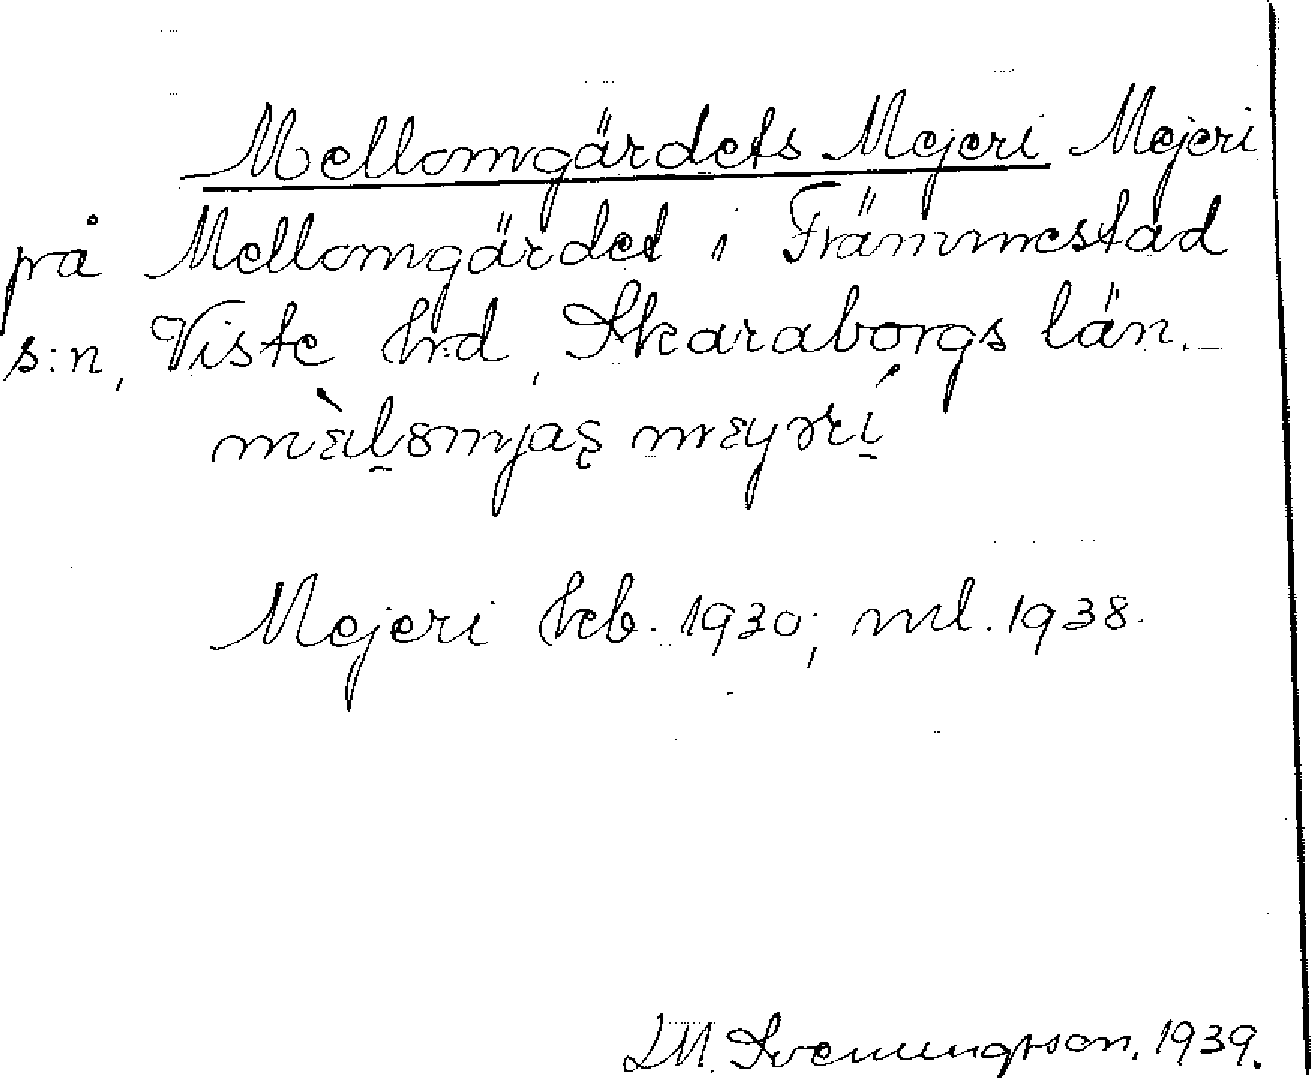 Mellomgärdets Mejeri Mejeri
på Mellomgärdet i Främmestad
s:n, Viste hrd, Skaraborgs län.
Mejeri keb. 1930; ml. 1938.
LM. Svenungsson. 1939.